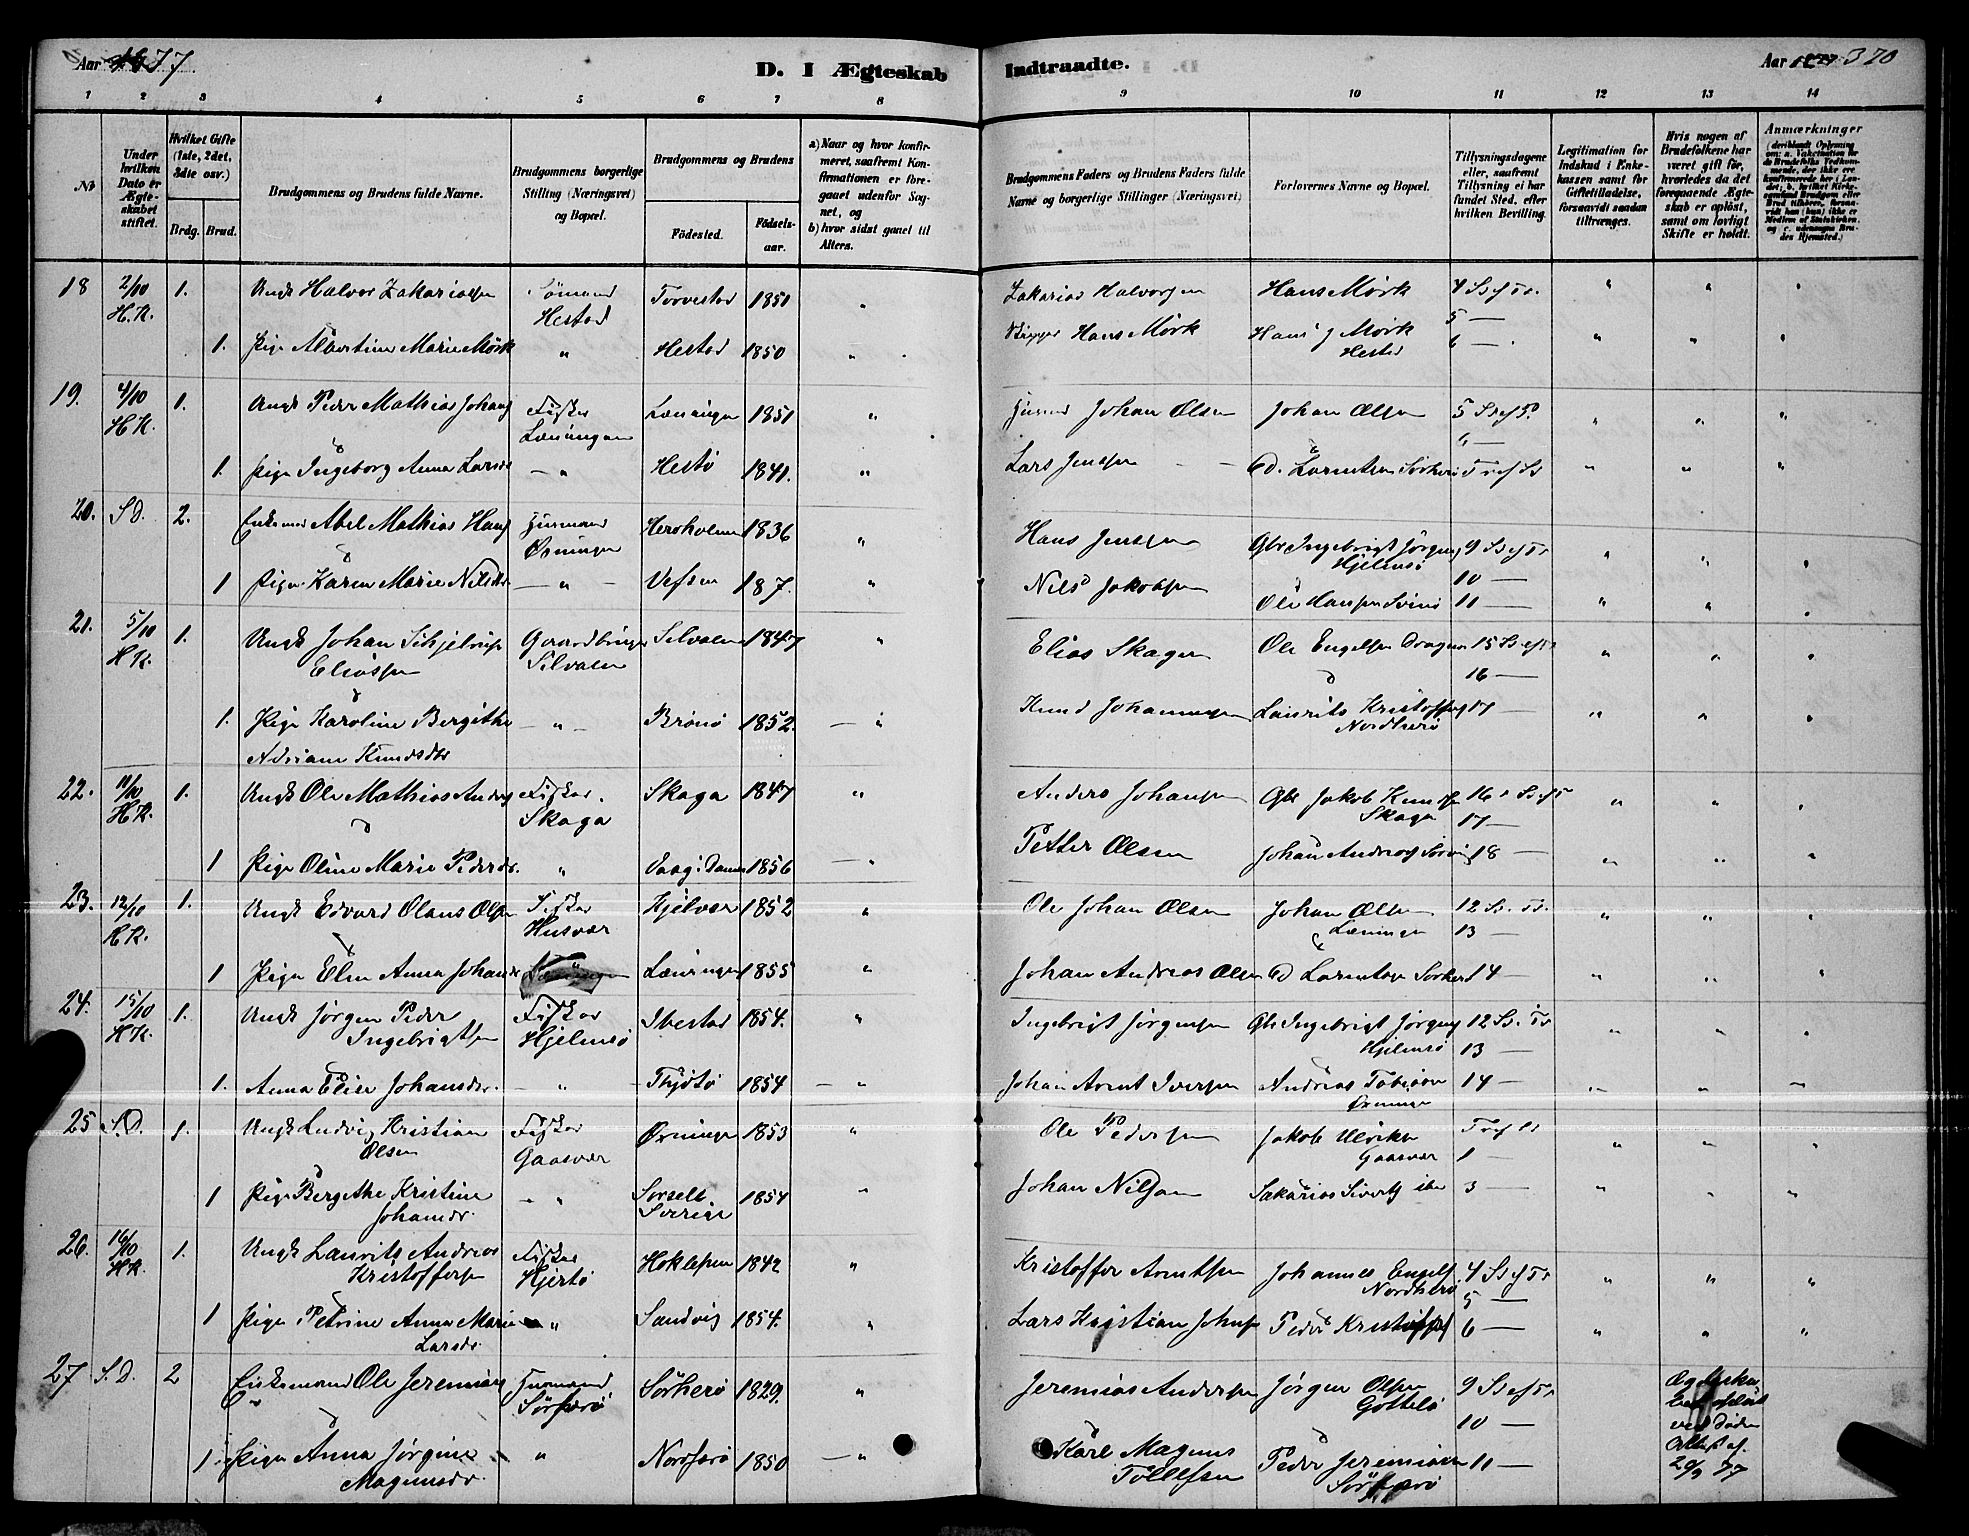 Aar 1877.
D. I Ægteskab
Indtraadte.
Aar 1877 370
1 2 3 4 5 6 7 8 9 10 11 12 13 14
No
Under hvilken Dato er Ægteskabet stiftet.
Hvilket Gifte (1ste, 2det, 3die osv.)
Brdg. Brud.
Brudgommens og Brudens fulde Navne.
Brudgommens borgerlige Stilling (Næringsvei) og Bopæl.
Brudgommens og Brudens
Fødested.
Fødselsaar.
a) Naar og hvor konfirmeret, saafremt Konfirmationen er foregaaet udenfor Sognet, og
b) hvor sidst gaaet til Alters.
Brudgommens Faders og Brudens Faders fulde Navne og borgerlige Stillinger (Næringsvei)
Forlovernes Navne og Bopæl.
Tillysningsdagene eller, saafremt Tillysning ei har fundet Sted, efter hvilken Bevilling.
Legitimation for Indskud i Enkekassen samt for Giftetilladelse, forsaavidt saadan tiltrænges.
Hvis nogen af Brudefolkene har været gift før, hvorledes da det foregaaende Ægteskab er opløst, samt om lovligt Skifte er holdt.
Anmærkninger
18 2/10 H.K. 1. Ungk Halvor Zakariassen Sømand Hestad Torvestad 1851 " Zakarias Halvorsen Hans Mörk 4 S. ef Tr. " " "
5 —
1. Pige Albertine Marie Mörk " Hestad 1850 " Skipper Hans Mörk Hans J Mörk Hestad 6 — " " "
19. 4/10 H.K. 1. Ungk Peder Mathias Johans Fisker Læningen Læningen 1851 " Husmd Johan Olsen Johan Olsen 5 S ef Tr " " "
6 —
1. Pige Ingeborg Anna Larsd — " Hestø 1841. " Lars Jensen Ed. Lorentsen Sörherö Tr ef S " " "
20. S.D. 2. Enkemand Abel Mathias Hans Husmand Øsningen Herøholmen 1836 " Hans Jensen Gbr Ingebrigt Jörgens Hjelmsö 9 S ef Tr " " "
10 —
1 Pige Karen Marie Nilsdr — " — Vefsen 187. " Nils Jakobsen Ole Hansen Svinö 11 — " " "
21. 5/10 H.K. 1. Ungk Johan Schjelrup Eliassen Gaardbruger Silvalen Silvalen 1847 " Elias Skagen Ole Engelsen Dragen 15 S ef Tr " " "
16 —
1. Pige Karoline Bergithe Adriane Knudsdr — " — Brönö 1852. — " Knud Johannesen Laurits Kristoffers Nordherö 17 — " " "
22. 11/10 H.K. 1. Ungk Ole Mathias Anders Fisker Skaga Skaga 1847 " Anders Johansen Gbr Jakob Knudsen Skaga 16 S ef Tr " " "
17 —
1 Pige Oline Marie Pedersdr. " Vaag i Dønnes 1856 — " Petter Olsen Johan Andreas 18 — " " "
23. 12/10 H.K. 1. Ungk Edvard Olaus Olsen Fisker Husvær Hjelvær 1852 " Ole Johan Olsen Johan Olsen Læningen 12 S. Tr. " " "
13 —
1 Pige Elen Anna Johansdr Læningen 1855 " Johan Andreas Olsen Ed Lorentsen Sörherö 14 — " " "
24. 15/10 H.K. 1. Ungk Jörgen Peder Ingebrigtsen Fisker Hjelmsö Ibestad 1854. " Ingebrigt Jörgensen Gbr Ingebrigt Jörgens Hjelmsö 12 S. Tr " " "
13 —
1. Anna Elise Johansdr. — " — Thjötö 1854 — " Johan Arent Iversen Andreas Tobiasen 14 — " " "
25 S.D. 1. Ungk Ludvig Kristian Olsen Fisker Gaasvær Øsningen 1853 " Ole Pedersen Jakob Ulriksen Gaasvær Tr ef " " "
1 —
1 Pige Bergethe Kristine Johansdr. — " Sorsele Sverige 1854 " Johan Nilsson Sakarias Sivertsen ibm 3 — " " "
26. 16/10 H.K. 1. Ungk Laurits Andreas Kristoffersen Fisker Hjertö 1842 " Kristoffer Arntsen Johannes Engels Nordherö 4 S ef Tr " " "
5 —
1 Pige Petrine Anna Marie Larsdr. " Sandvig 1854. " Lars Kristian Johns Peder Kristoffers 6 — " " "
27 S.D. 2 Enkemand Ole Jeremias Husmand Sörherö Sörherö 1829. " Jeremias Andersen Jörgen Olsen 9 S ef Tr
10 —
1. Pige Anna Jörgine Magnusdr. " Nordherö 1850 — " Karl Magnus Tollefsen Peder Jeremiasen Sörherö 11 —
ved Döden
Attest af
20/9 77